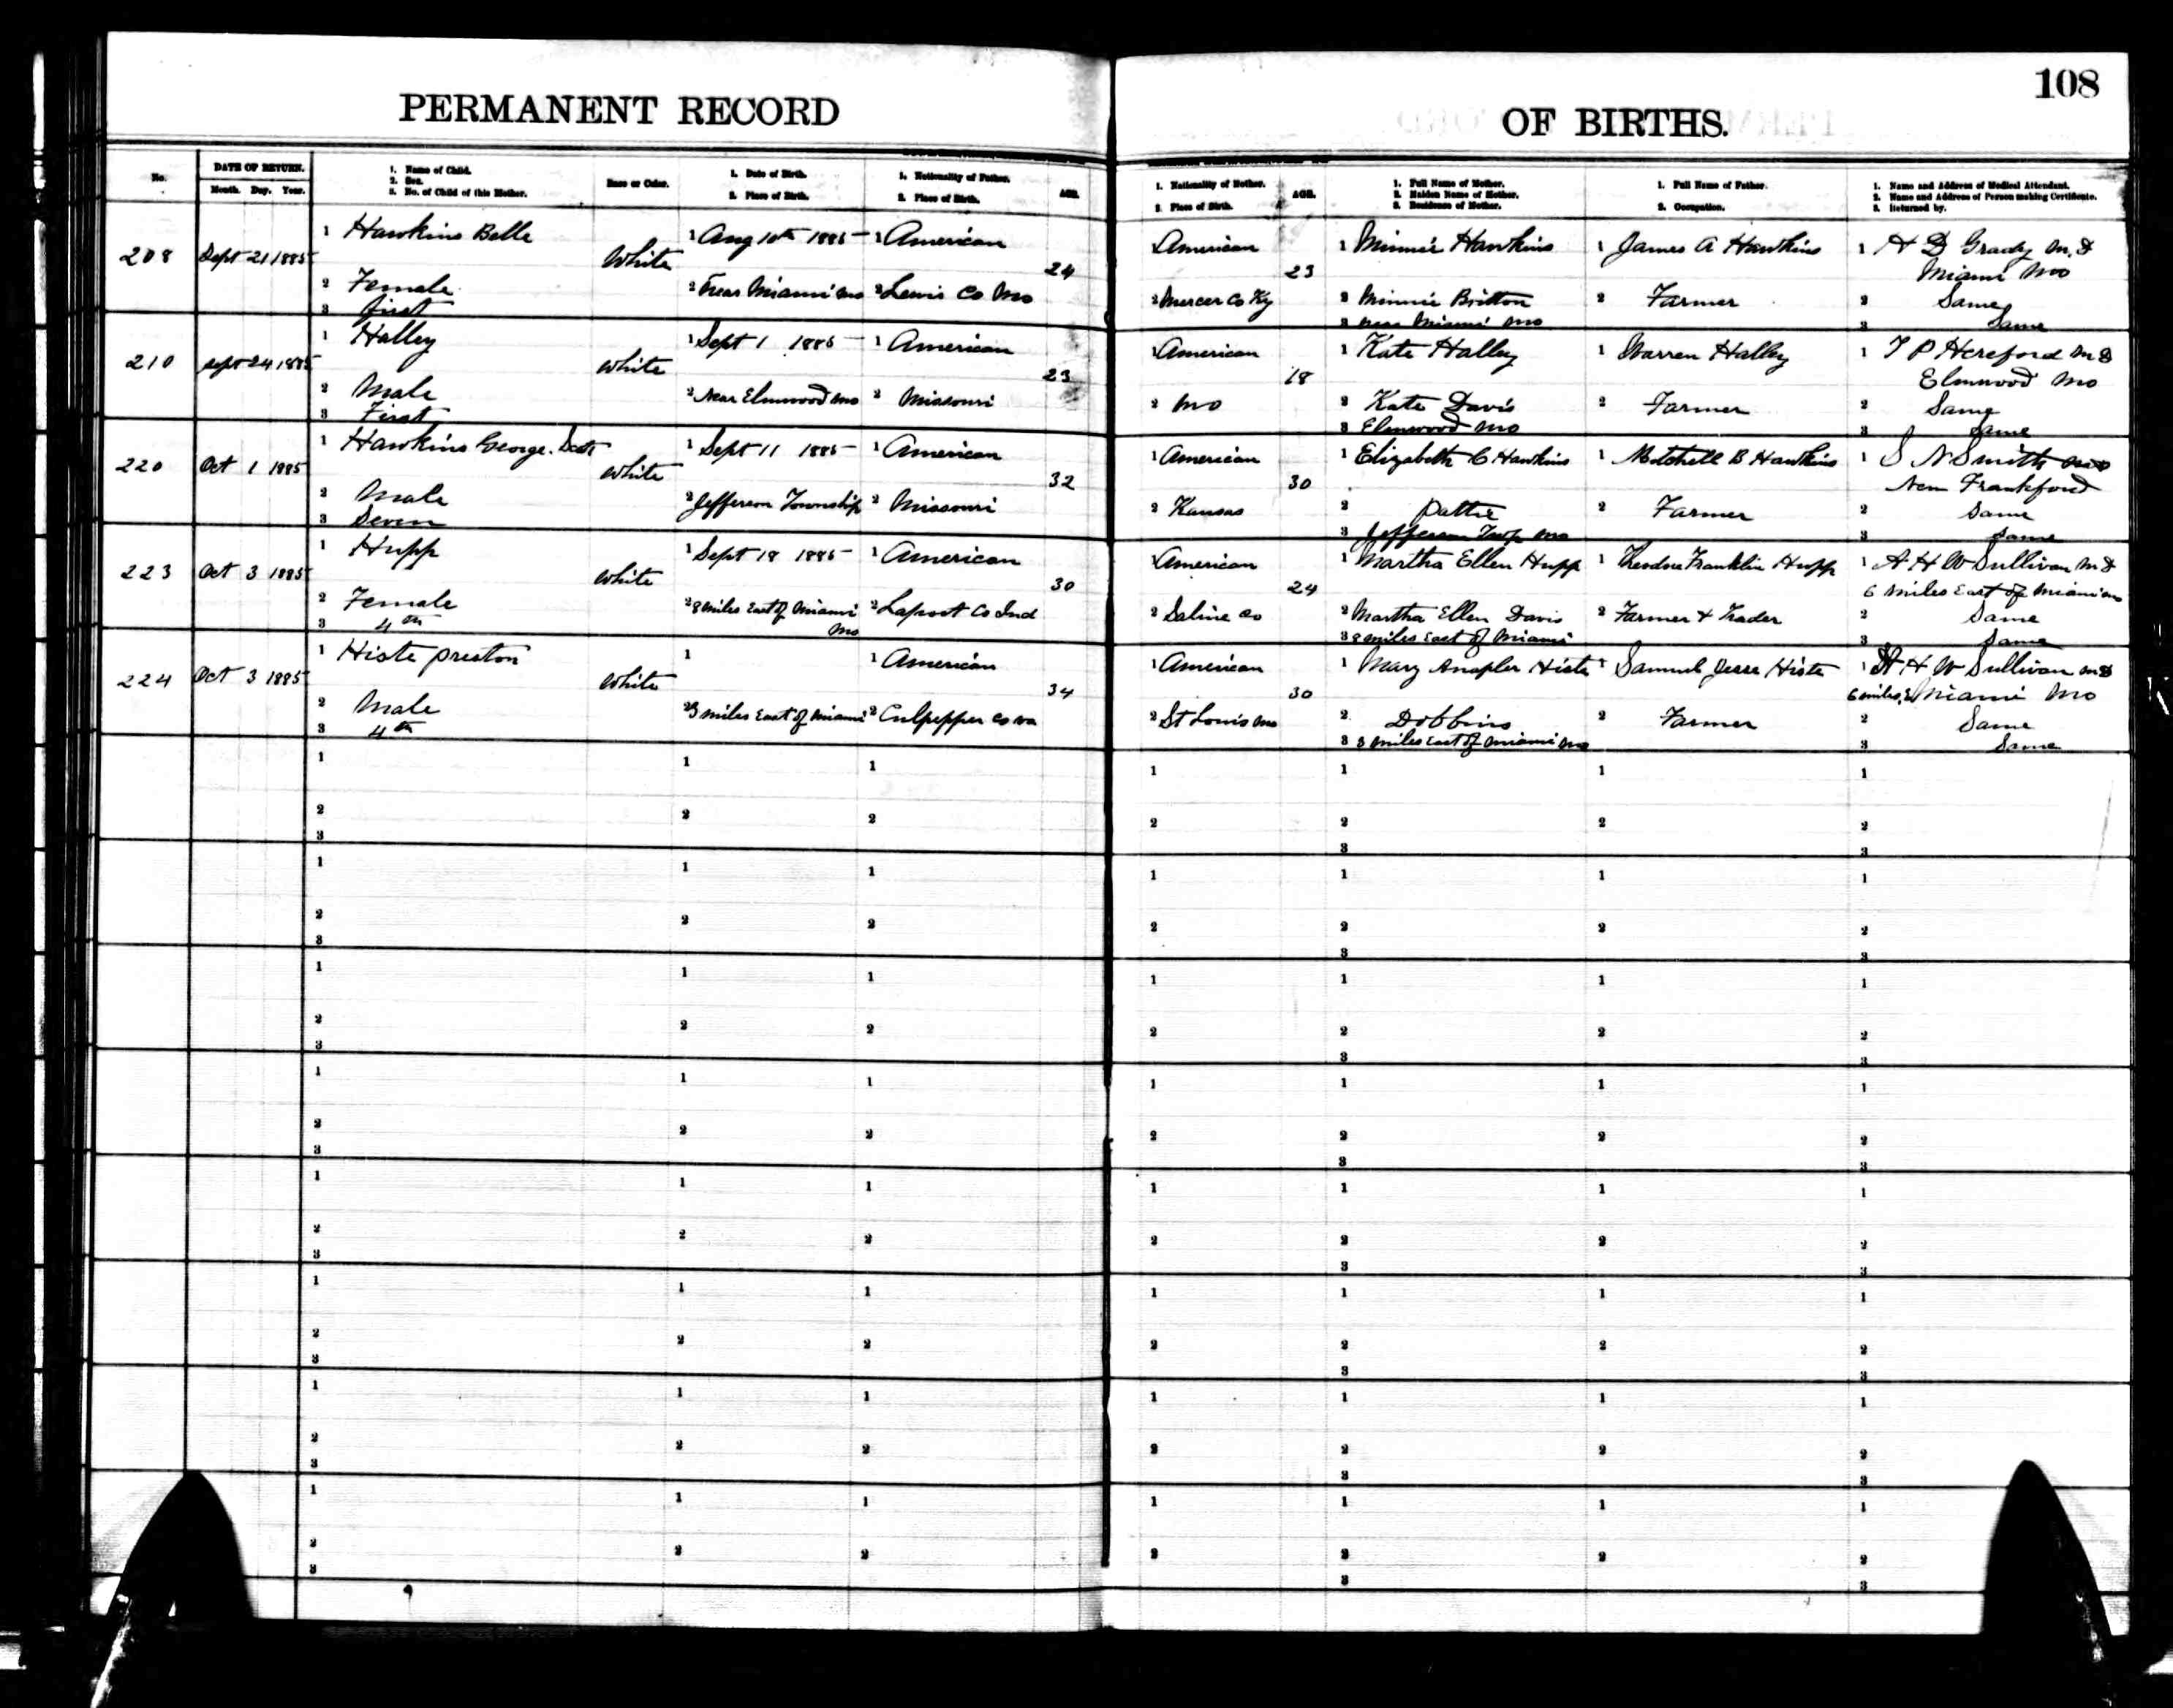 108
PERMANENT RECORD OF BIRTHS.
No.
DATE OF RETURN.
Month. Day. Year.
1. Name of Child.
2. Sex.
3. No. of Child of this Mother.
Race or Color.
1. Date of Birth.
2. Place of Birth.
1. Nationality of Father.
2. Place of Birth.
AGE.
1. Nationality of Mother.
2. Place of Birth.
AGE.
1. Full Name of Mother.
2. Maiden Name of Mother.
3. Residence of Mother.
1. Full Name of Father.
2. Occupation.
1. Name and Address of Medical Attendant.
2. Name and Address of Person making Certificate.
3. Returned by.
208
Sept 21 1885
1 Hawkins Belle
2 Female
3 first
White
1 Aug 10th 1885
2 Near Miami Mo
1 American
2 Lewis Co Mo
24
1 American
2 Mercer Co Ky
23
1 Minnie Hawkins
2 Minnie Britton
3 near Miami Mo
1 James A Hawkins
2 Farmer
1 H D Grady M.D
Miami Mo
2 Same
3 Same
210
Sept 24 1885
1 Halley
2 Male
3 First
White
1 Sept 1 1885
2 Near Elmwood Mo
1 American
2 Missouri
23
1 American
2 Mo
18
1 Kate Halley
2 Kate Davis
3 Elmwood Mo
1 Warren Halley
2 Farmer
1 T P Hereford M D
Elmwood Mo
2 Same
3 Same
220
Oct 1 1885
1 Hawkins George
2 Male
3 Seven
White
1 Sept 11 1885
2 Jefferson Township
1 American
2 Missouri
32
1 American
2 Kansas
30
1 Elizabeth C Hawkins
2 Pattie
3 Jefferson Twp Mo
1 Mitchell B Hawkins
2 Farmer
1 S N Smith MD
New Frankford
2 Same
3 Same
223
Oct 3 1885
1 Hupp
2 Female
3 4th
White
1 Sept 18 1885
2 8 miles East of Miami
Mo
1 American
2 Laport Co Ind
30
1 American
2 Saline Co
24
1 Martha Ellen Hupp
2 Martha Ellen Davis
3 8 miles East of Miami
1 Theodore Franklin Hupp
2 Farmer & Trader
1 A H W Sullivan M D
6 miles East of Miami Mo
2 Same
3 Same
224
Oct 3 1885
1 Histe Preston
2 Male
3 4th
White
1
2 3 miles East of Miami
1 American
2 Culpepper Co Va
34
1 American
2 St Louis Mo
30
1 Mary Histe
2 Dobbins
3 3 miles East of Miami Mo
1 Samuel Jesse Histe
2 Farmer
1 A H W Sullivan M D
6 miles E Miami Mo
2 Same
3 Same